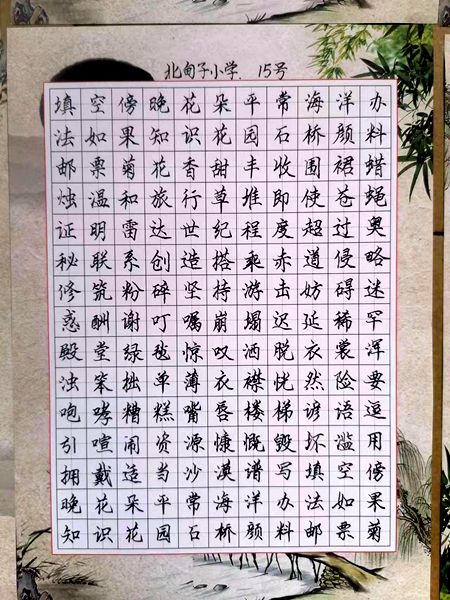 北甸子小学. 15号
填空傍晚花朵平常海洋办
法如果知识花园石桥颜料
邮票菊花香甜丰收围裙蜡
烛温和旅行草堆即使苍蝇
证明雷达世纪程度超过奥
秘联系创造搭乘赤道侵略
修筑粉碎坚持游击妨碍迷
惑酬谢叮嘱崩塌迟延稀罕
殿堂绿毯惊叹洒脱衣裳浑
浊笨拙单薄衣襟恍然险要
咆哮糟糕嘴唇楼梯谚语逗
引喧闹资源慷慨毁坏滥用
拥戴适当沙漠谱写填空傍
晚花朵平常海洋办法如果
知识花园石桥颜料邮票菊